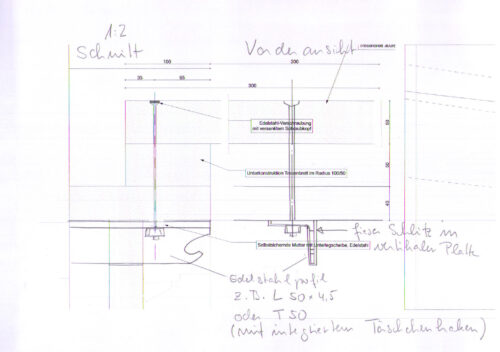 1:2
Schnitt
Vorderansicht
100
200
35
65
300
Edelstahl-Verschraubung
mit versenktem Schraubkopf
Unterkonstruktion Traversbrett im Radius 100/50
50
50
40
Selbstsichernde Mutter mit Unterlegscheibe, Edelstahl
Schlitz in
vertikaler Platte
Edelstahlprofil
z.B. L 50 x 4.5
oder T 50
(mit integriertem Täschchenhaken)